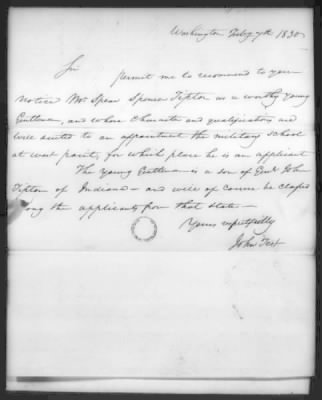 Washington Feby 7th 1830
Sir
permit me to recommend to your
notice Mr Spear Spencer Tipton as a worthy young
Gentleman, and whose Character and qualifications are
well suited to an appointment the military school
at west point, for which place he is an applicant
The young Gentleman is a son of Genl John
Tipton of Indiana – and will of course be classed
ong the applicants from that state –
Yours respectfully
John Test